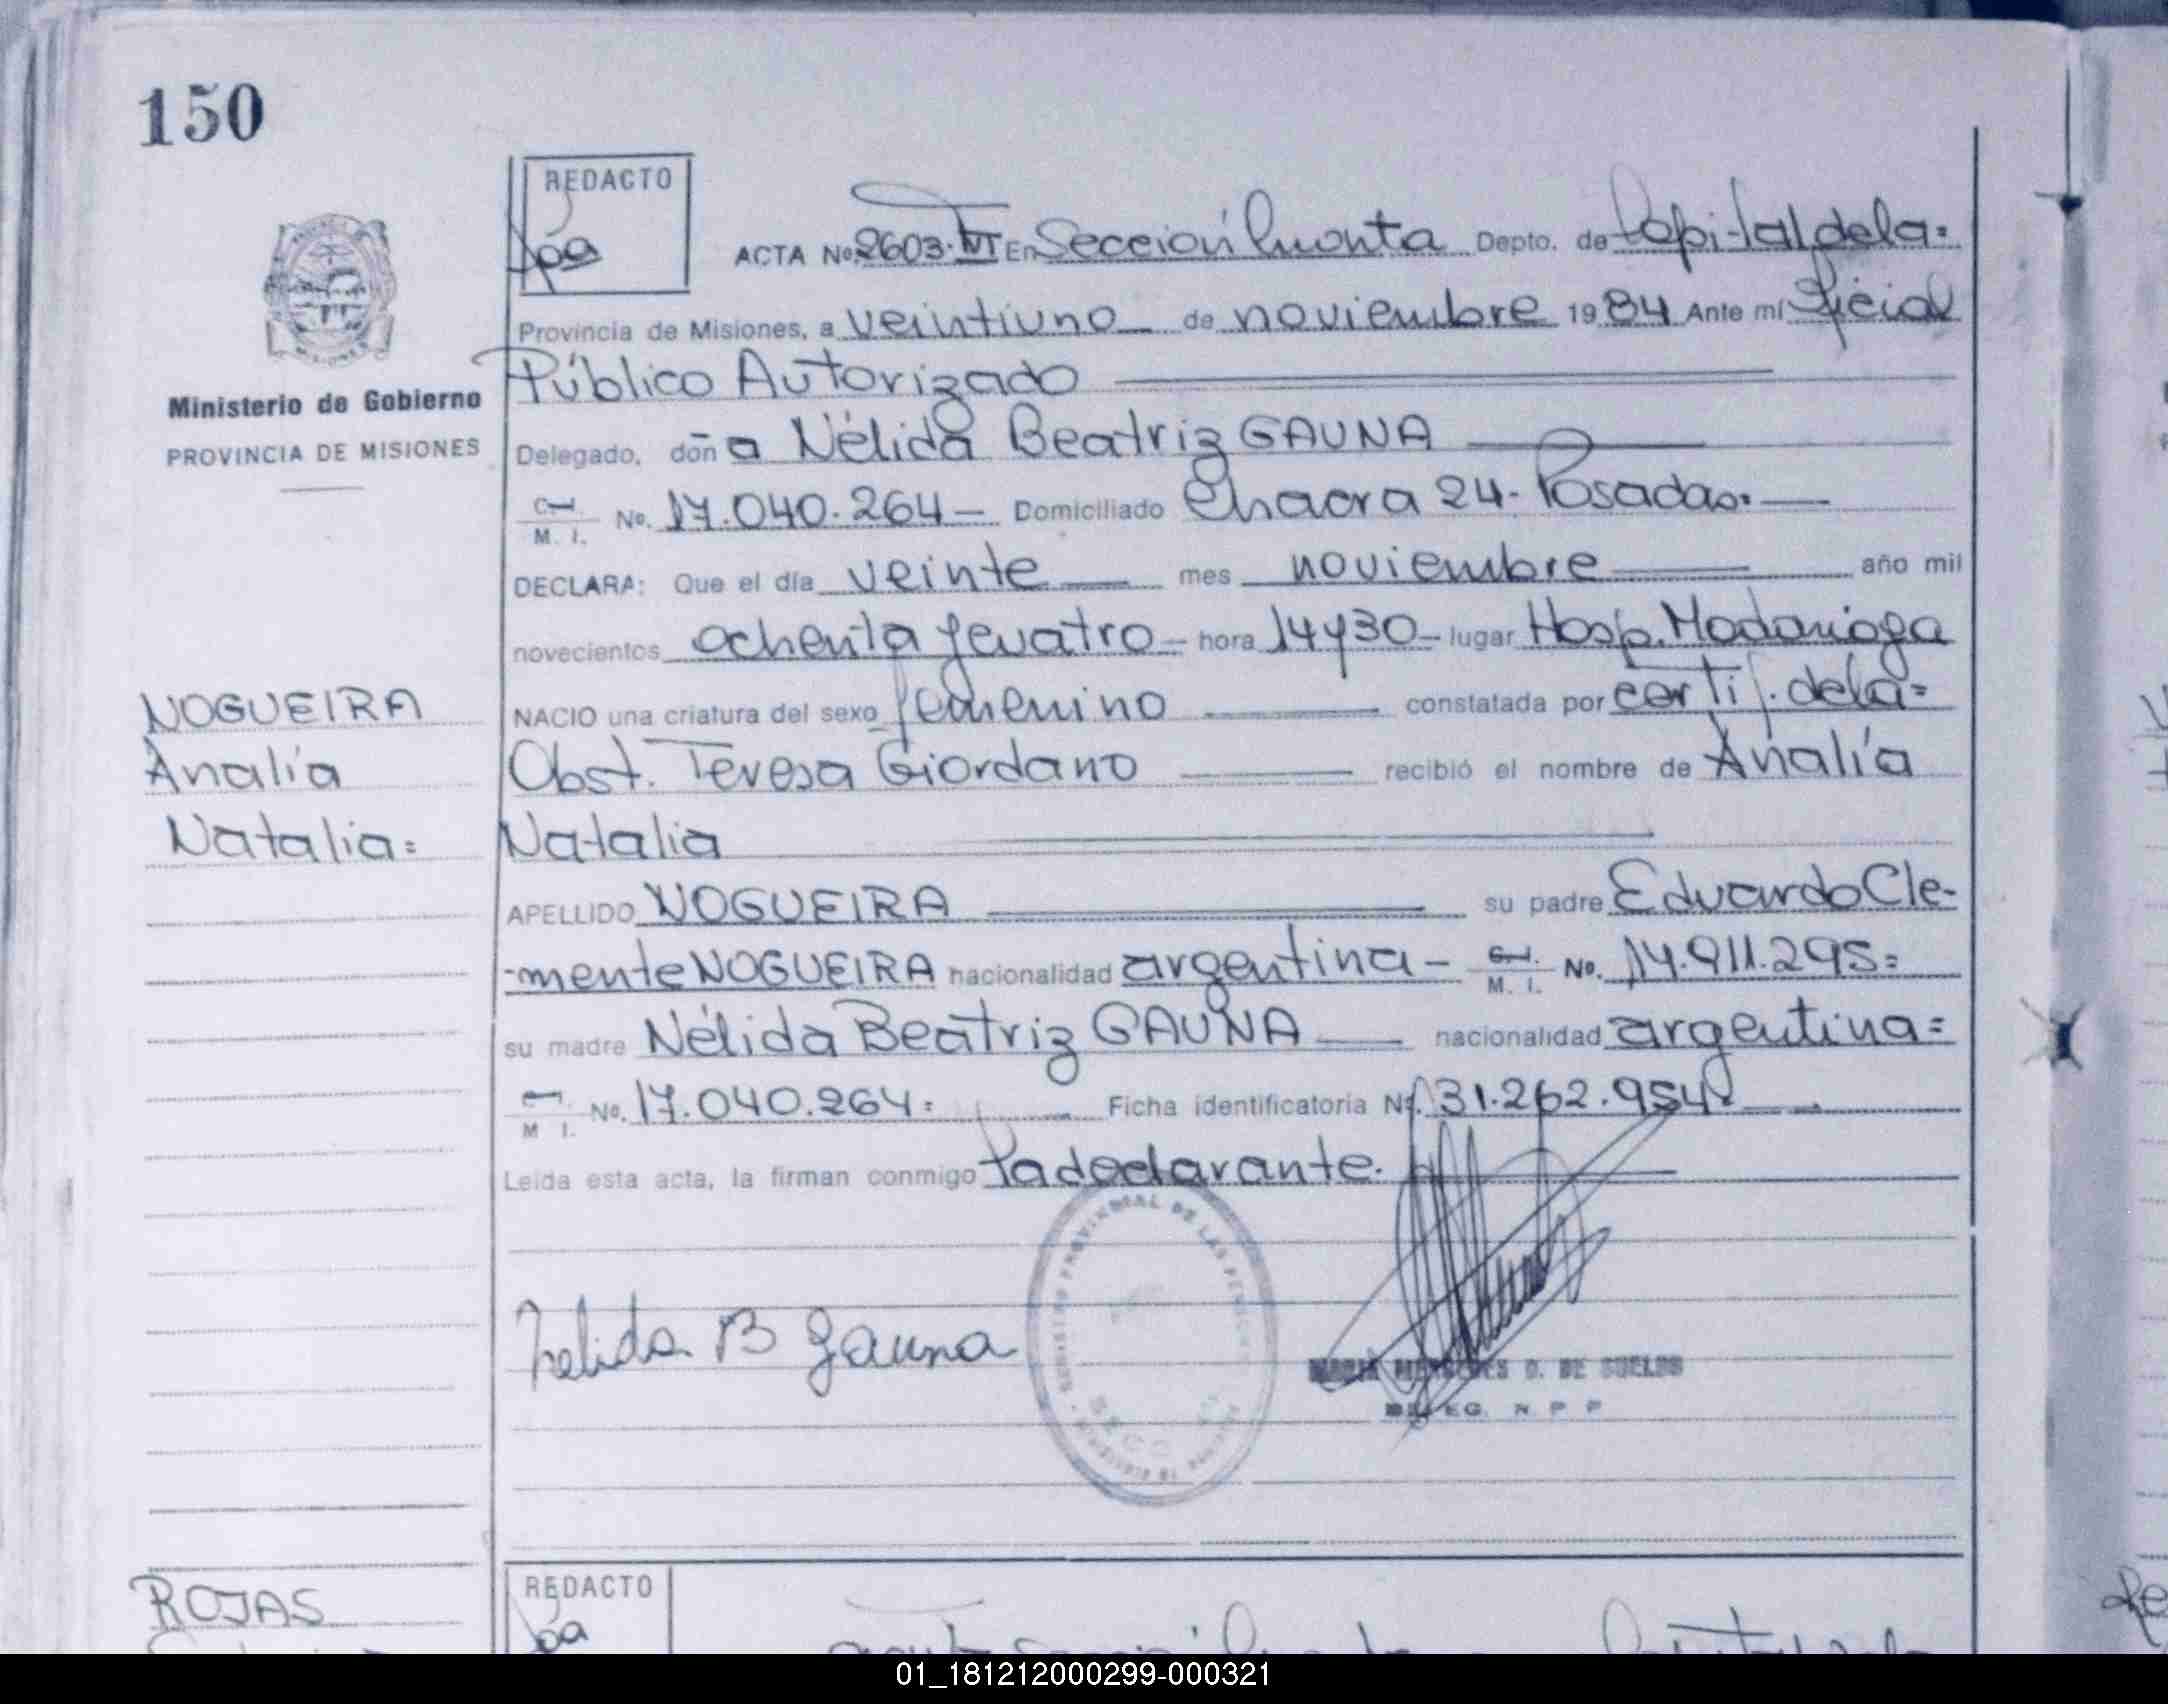 150
REDACTO
ACTA No. 2603. En Sección Cuarta Depto. de Capital dela=
Provincia de Misiones, a veintiuno de noviembre 1984 Ante mí Oficial
Público Autorizado
Ministerio de Gobierno
PROVINCIA DE MISIONES
Delegado, doña Nélida Beatriz GAUNA
C. I. M. I. No. 17.040.264 - Domiciliado Chacra 24. Posadas.
DECLARA: Que el día veinte mes noviembre año mil
novecientos ochenta y cuatro - hora 14 y 30 - lugar Hosp. Madariaga
NACIO una criatura del sexo femenino constatada por certif. dela=
Obst. Teresa Giordano recibió el nombre de Analía
Natalia
NOGUEIRA
Analía
Natalia=
APELLIDO NOGUEIRA su padre Eduardo Cle-
-mente NOGUEIRA nacionalidad argentina - C. I. M. I. No. 14.911.295=
su madre Nélida Beatriz GAUNA nacionalidad argentina=
M I. No. 17.040.264= Ficha identificatoria Nº. 31.262.954
Leída esta acta, la firman conmigo la declarante.
Nelida B Gauna
REGISTRO PROVINCIAL DE LAS PERSONAS
SECC
MARIA MERCEDES O. DE SUELDO
DELEG. N. P P
ROJAS
REDACTO
01_181212000299-000321